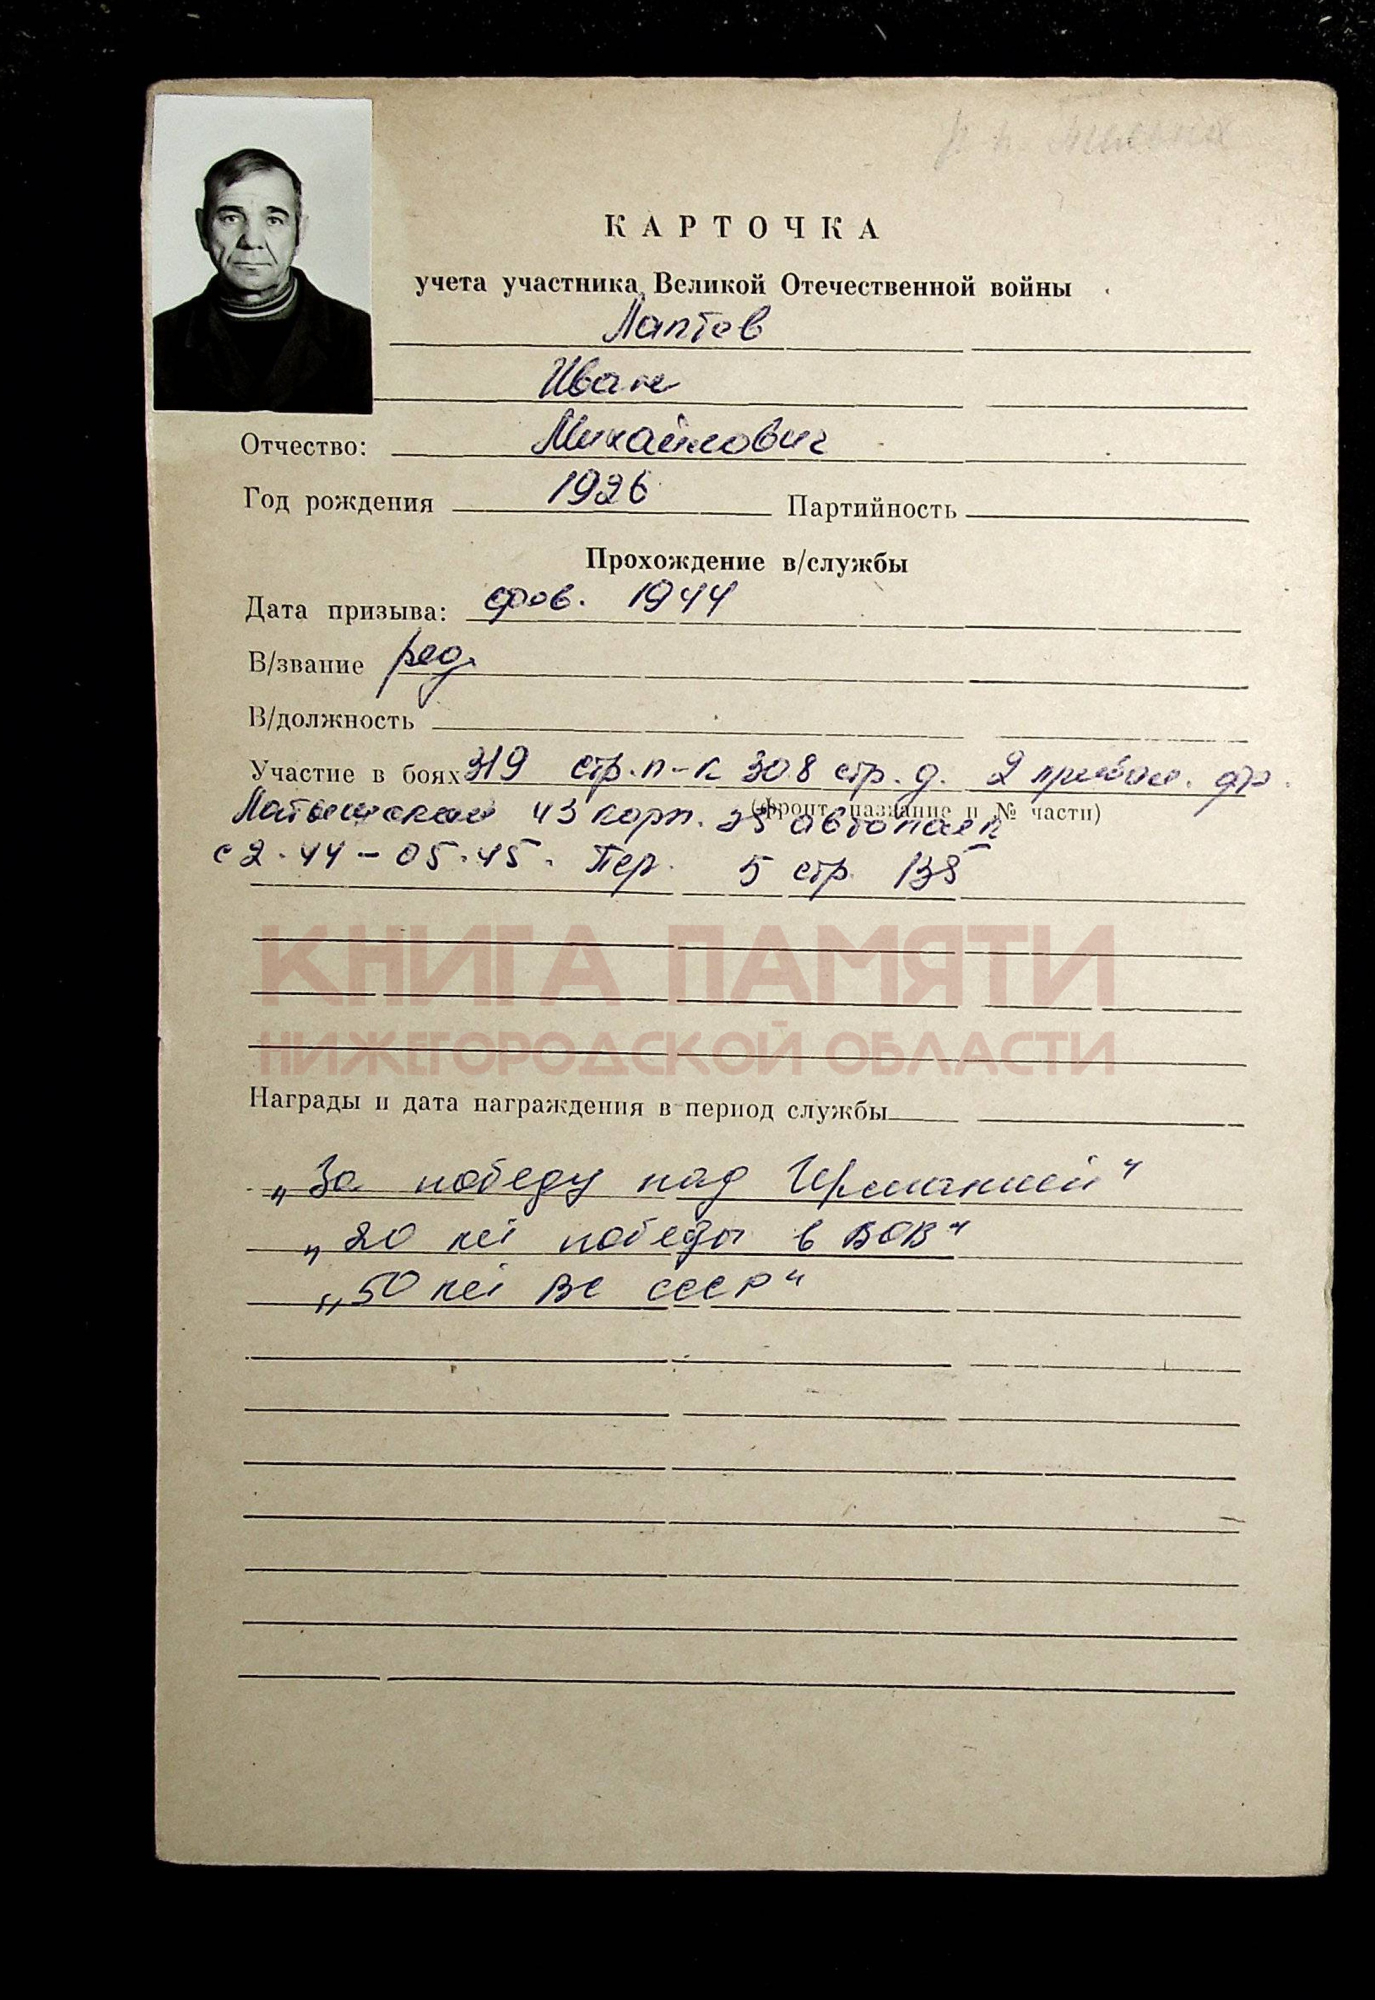 КАРТОЧКА
учета участника Великой Отечественной войны
Лаптев
Иван
Отчество: Михайлович
Год рождения 1926 Партийность
Прохождение в/службы
Дата призыва: фев. 1944
В/звание ряд.
В/должность
Участие в боях 319 стр. п-к 308 стр. д. 2 прибал. фр.
(фронт, название и № части)
Латышская 43 корп. 25 автополк
с 2.44 - 05.45. Пер. 5 стр
КНИГА ПАМЯТИ
НИЖЕГОРОДСКОЙ ОБЛАСТИ
Награды и дата награждения в период службы
„За победу над Германией“
„20 лет победы в ВОВ“
„50 лет ВС СССР“